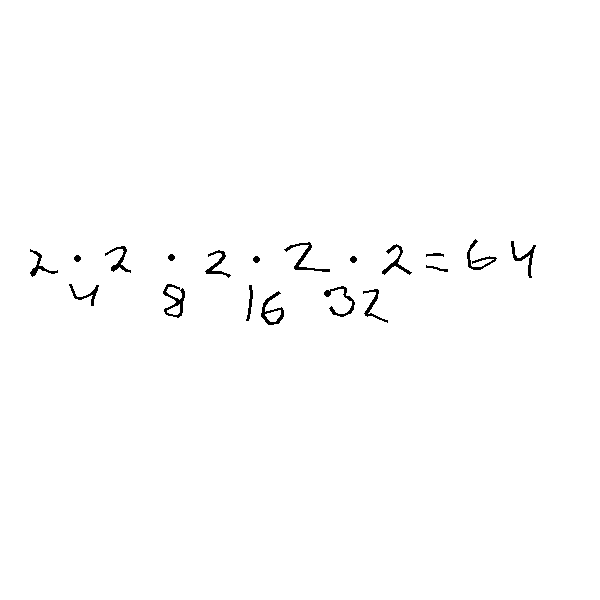 2 · 2 · 2 · 2 · 2 = 64
4 8 16 32